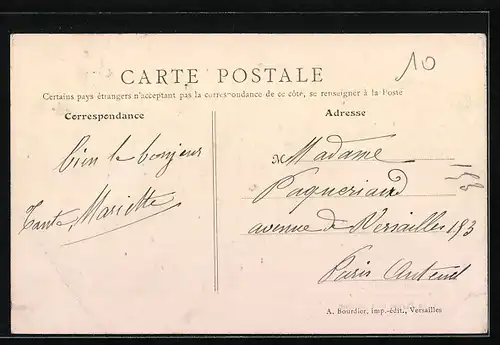 10
CARTE POSTALE
Certains pays étrangers n'acceptant pas la correspondance de ce côté, se renseigner à la Poste
Correspondance
Adresse
bien le bonjour
Tante Mariette
M Madame
avenue de Versailles 193
Paris Auteuil
A. Bourdier, imp.-édit., Versailles